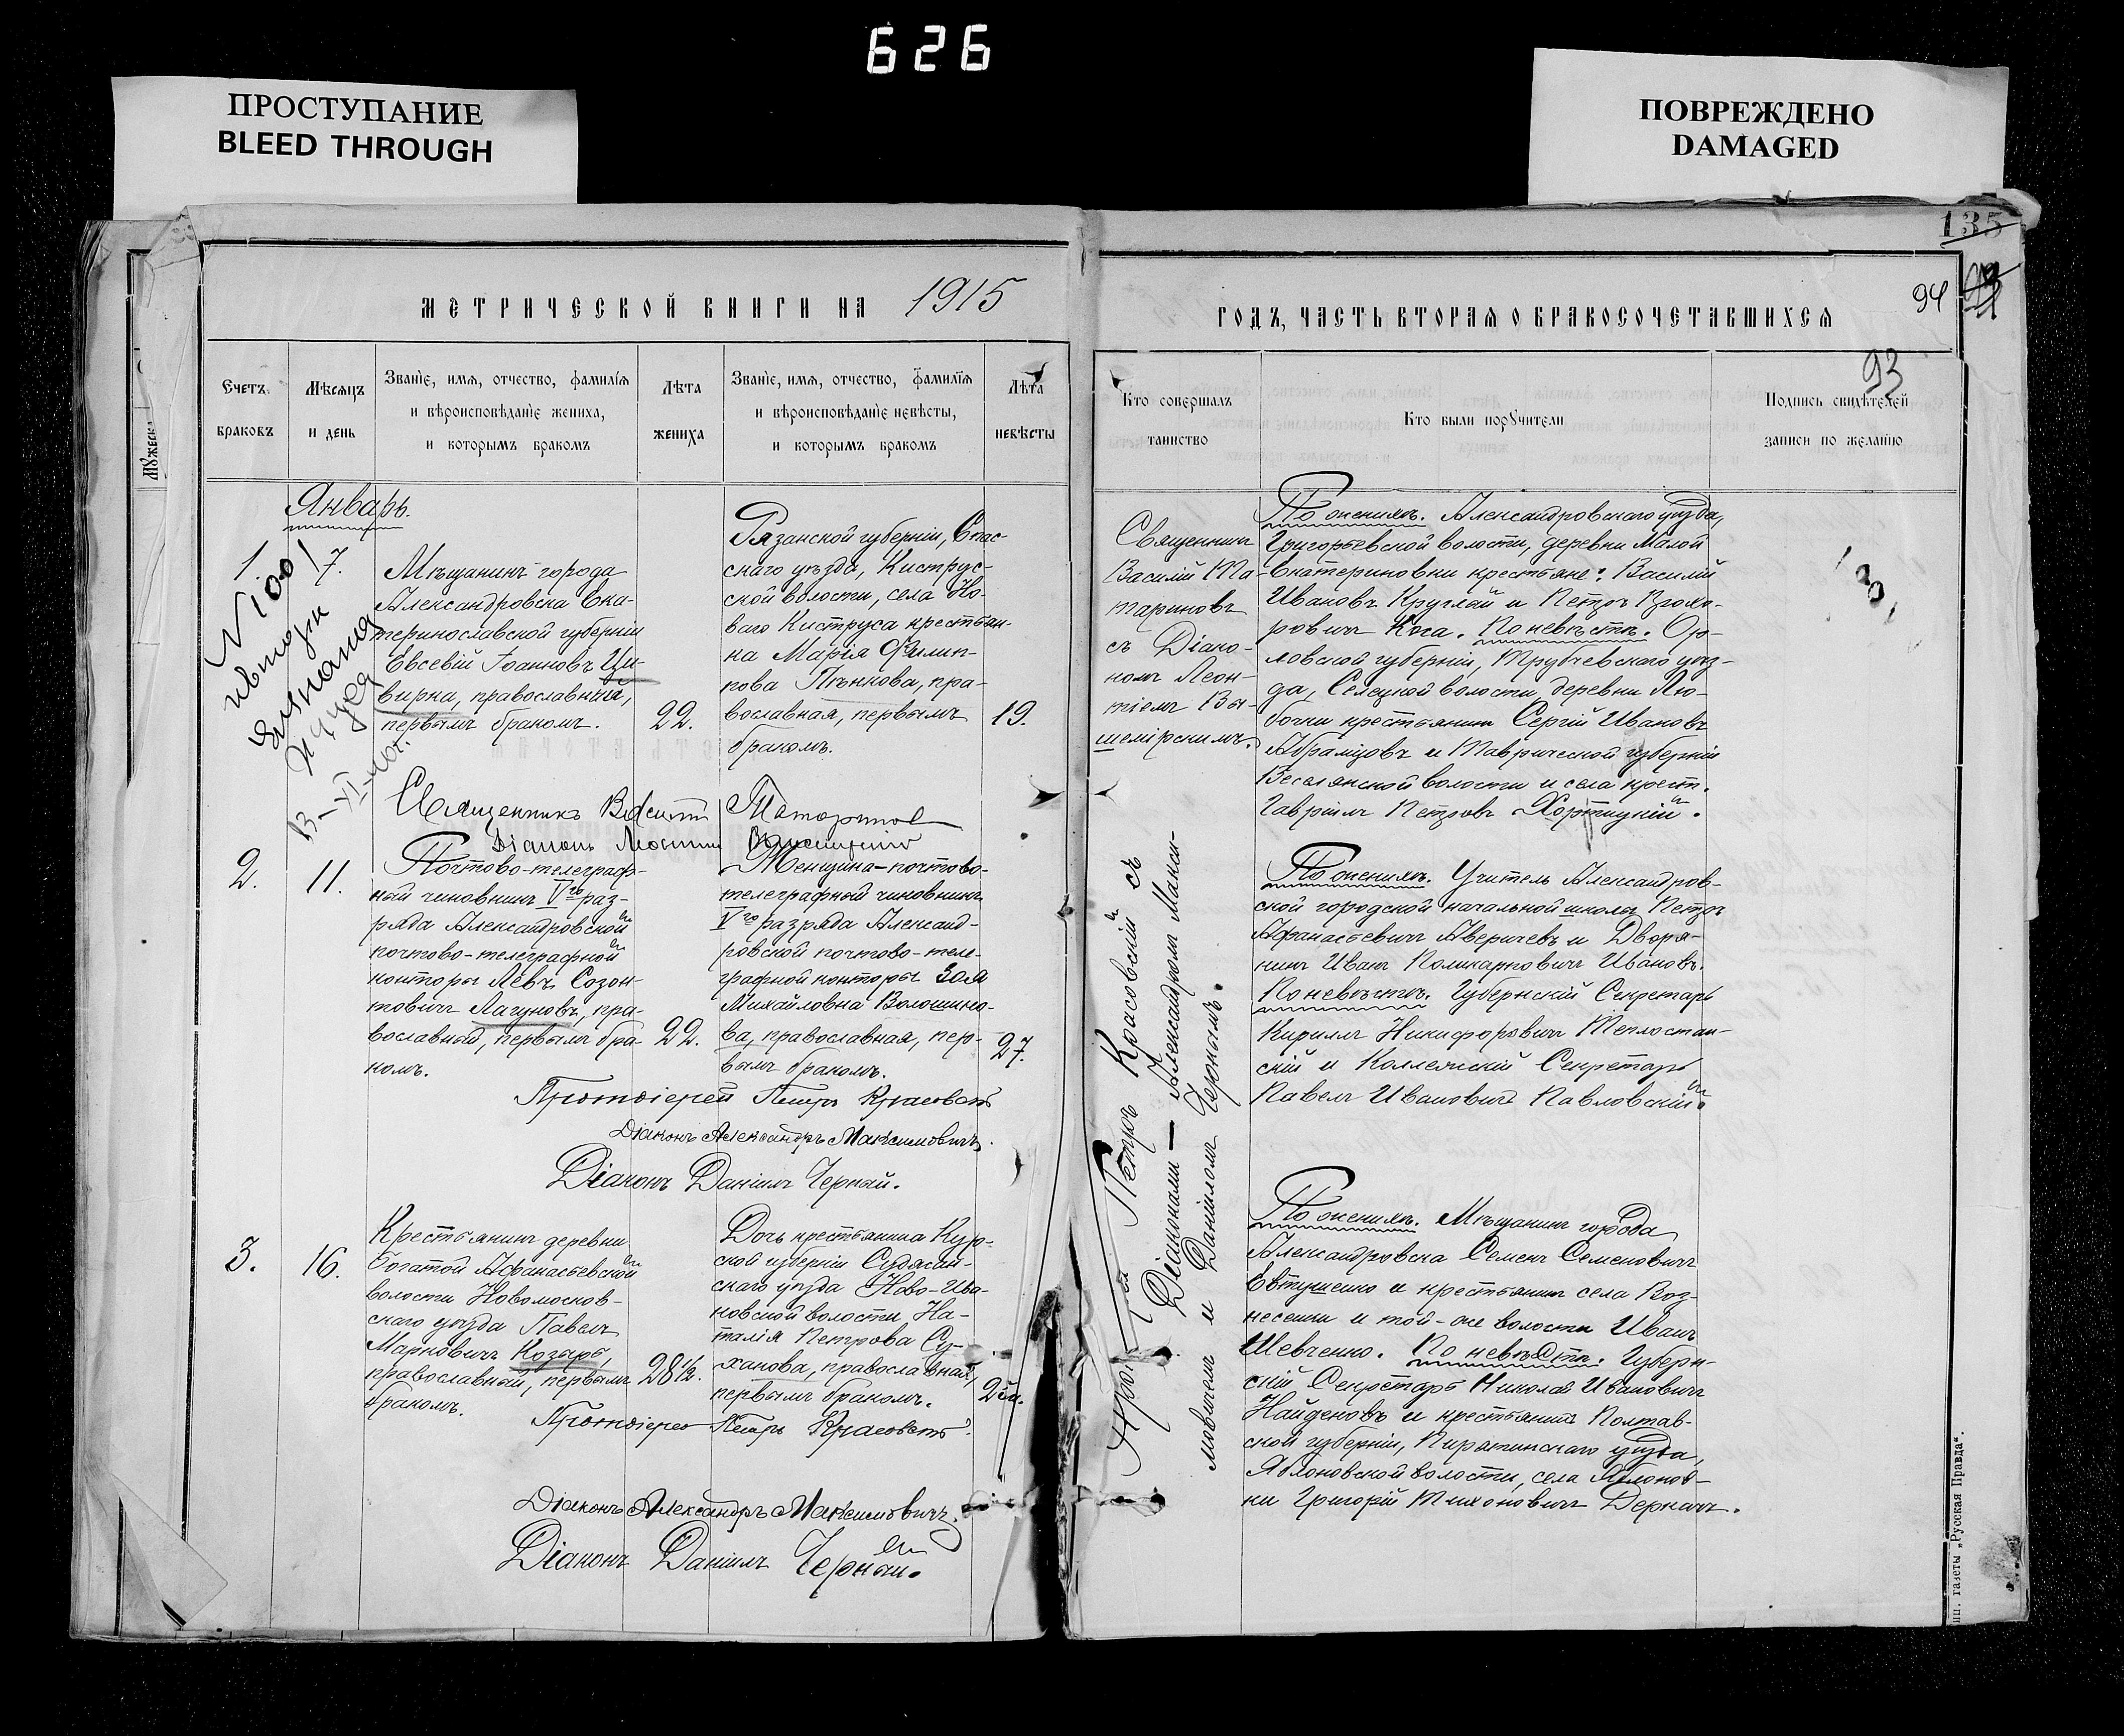 626
ПРОСТУПАНИЕ
BLEED THROUGH
ПОВРЕЖДЕНО
DAMAGED
135
94
93
МЕТРИЧЕСКОЙ КНИГИ НА 1915
ГОДЪ, ЧАСТЬ ВТОРАЯ О БРАКОСОЧЕТАВШИХСЯ
Счетъ
браковъ
Мѣсяцъ
и день
Званіе, имя, отчество, фамилія
и вѣроисповѣданіе жениха,
и которымъ бракомъ
Лѣта
жениха
Званіе, имя, отчество, фамилія
и вѣроисповѣданіе невѣсты,
и которымъ бракомъ
Лѣта
невѣсты
Кто совершалъ
таинство
Кто были поручители
Подпись свидѣтелей
записи по желанію
Январь.
1
7.
N 100
выдана
Мѣщанинъ города
Александровска Ека-
теринославской губерніи
Евсевій Іоанновъ Ци-
вирка, православный,
первымъ бракомъ.
22.
Рязанской губерніи, Спас-
скаго уѣзда, Киструс-
ской волости, села Но-
ваго Киструса крестьян-
ка Марія Филип-
пова Пѣнкова, пра-
вославная, первымъ
бракомъ.
19.
Священникъ
Василій Та-
тариновъ
съ Діако-
номъ Леон-
тіемъ Вы-
шемірскимъ.
По женихѣ. Александровскаго уѣзда,
Григорьевской волости, деревни Малой
Екатериновки крестьяне: Василій
Ивановъ Круглый и Петръ Прохо-
ровичъ Коса. По невѣстѣ. Ор-
ловской губерніи, Трубчевскаго уѣз-
да, Селецкой волости, деревни Лю-
бочки крестьянинъ Сергій Ивановъ
Абрамцовъ и Таврической губерніи
Веселянской волости и села крест.
Гавріилъ Петровъ Хортицкій.
Священникъ Василій Татариновъ
Діаконъ Леонтій Вышемірскій
2.
11.
Почтово-телеграф-
ный чиновникъ Vго раз-
ряда Александровской
почтово-телеграфной
конторы Левъ Созон-
товичъ Лагуновъ, пра-
вославный, первымъ бра-
комъ.
22.
Женщина-почтово-
телеграфный чиновникъ
Vго разряда Александ-
ровской почтово-теле-
графной конторы Зоя
Михайловна Волошино-
ва, православная, пер-
вымъ бракомъ.
27.
Протоіерей Петръ Красовскій съ
Діаконами — Александромъ Макси-
мовичемъ и Даніиломъ Чернымъ.
По женихѣ. Учитель Александров-
ской городской начальной школы Петръ
Афанасьевичъ Аверичевъ и Дворя-
нинъ Иванъ Поликарповичъ Ивановъ.
По невѣстѣ. Губернскій Секретарь
Кириллъ Никифоровичъ Теплостан-
скій и Коллежскій Секретарь
Павелъ Ивановичъ Павловскій.
Протоіерей Петръ Красовскій
Діаконъ Александръ Максимовичъ.
Діаконъ Даніилъ Черный.
3.
16.
Крестьянинъ деревни
Богатой Афанасьевской
волости Новомосков-
скаго уѣзда Павелъ
Марковичъ Козырь,
православный, первымъ
бракомъ.
28½.
Дочь крестьянина Кур-
ской губерніи Суджан-
скаго уѣзда Ново-Ива-
новской волости На-
талія Петрова Су-
ханова, православная,
первымъ бракомъ.
По женихѣ. Мѣщанинъ города
Александровска Семенъ Семеновичъ
Евтушенко и крестьянинъ села Воз-
несенки и той-же волости Иванъ
Шевченко. По невѣстѣ. Губерн-
скій Секретарь Николай Ивановичъ
Найденовъ и крестьянинъ Полтав-
ской губерніи, Пирятинскаго уѣзда,
Яблоновской волости, села Яблонов-
ки Григорій Тихоновичъ Деркачъ.
Протоіерей Петръ Красовскій.
Діаконъ Александръ Максимовичъ.
Діаконъ Даніилъ Черный.
газеты „Русская Правда“.